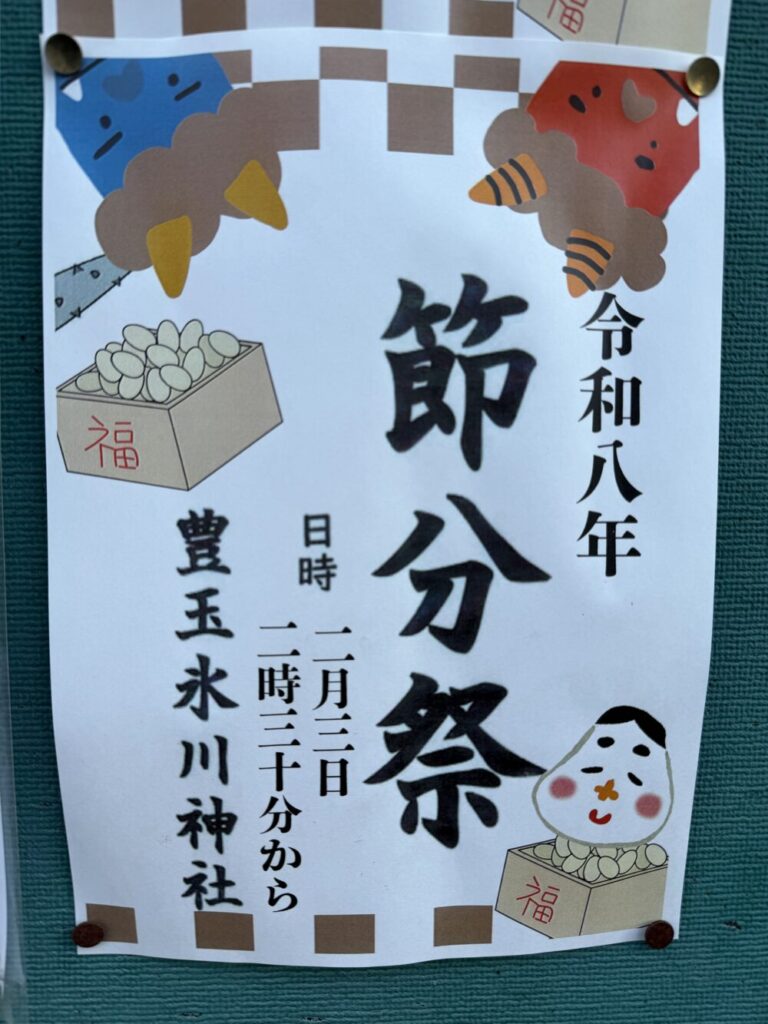 令和八年
節分祭
日時
二月三日
二時三十分から
豊玉氷川神社
福
福
福